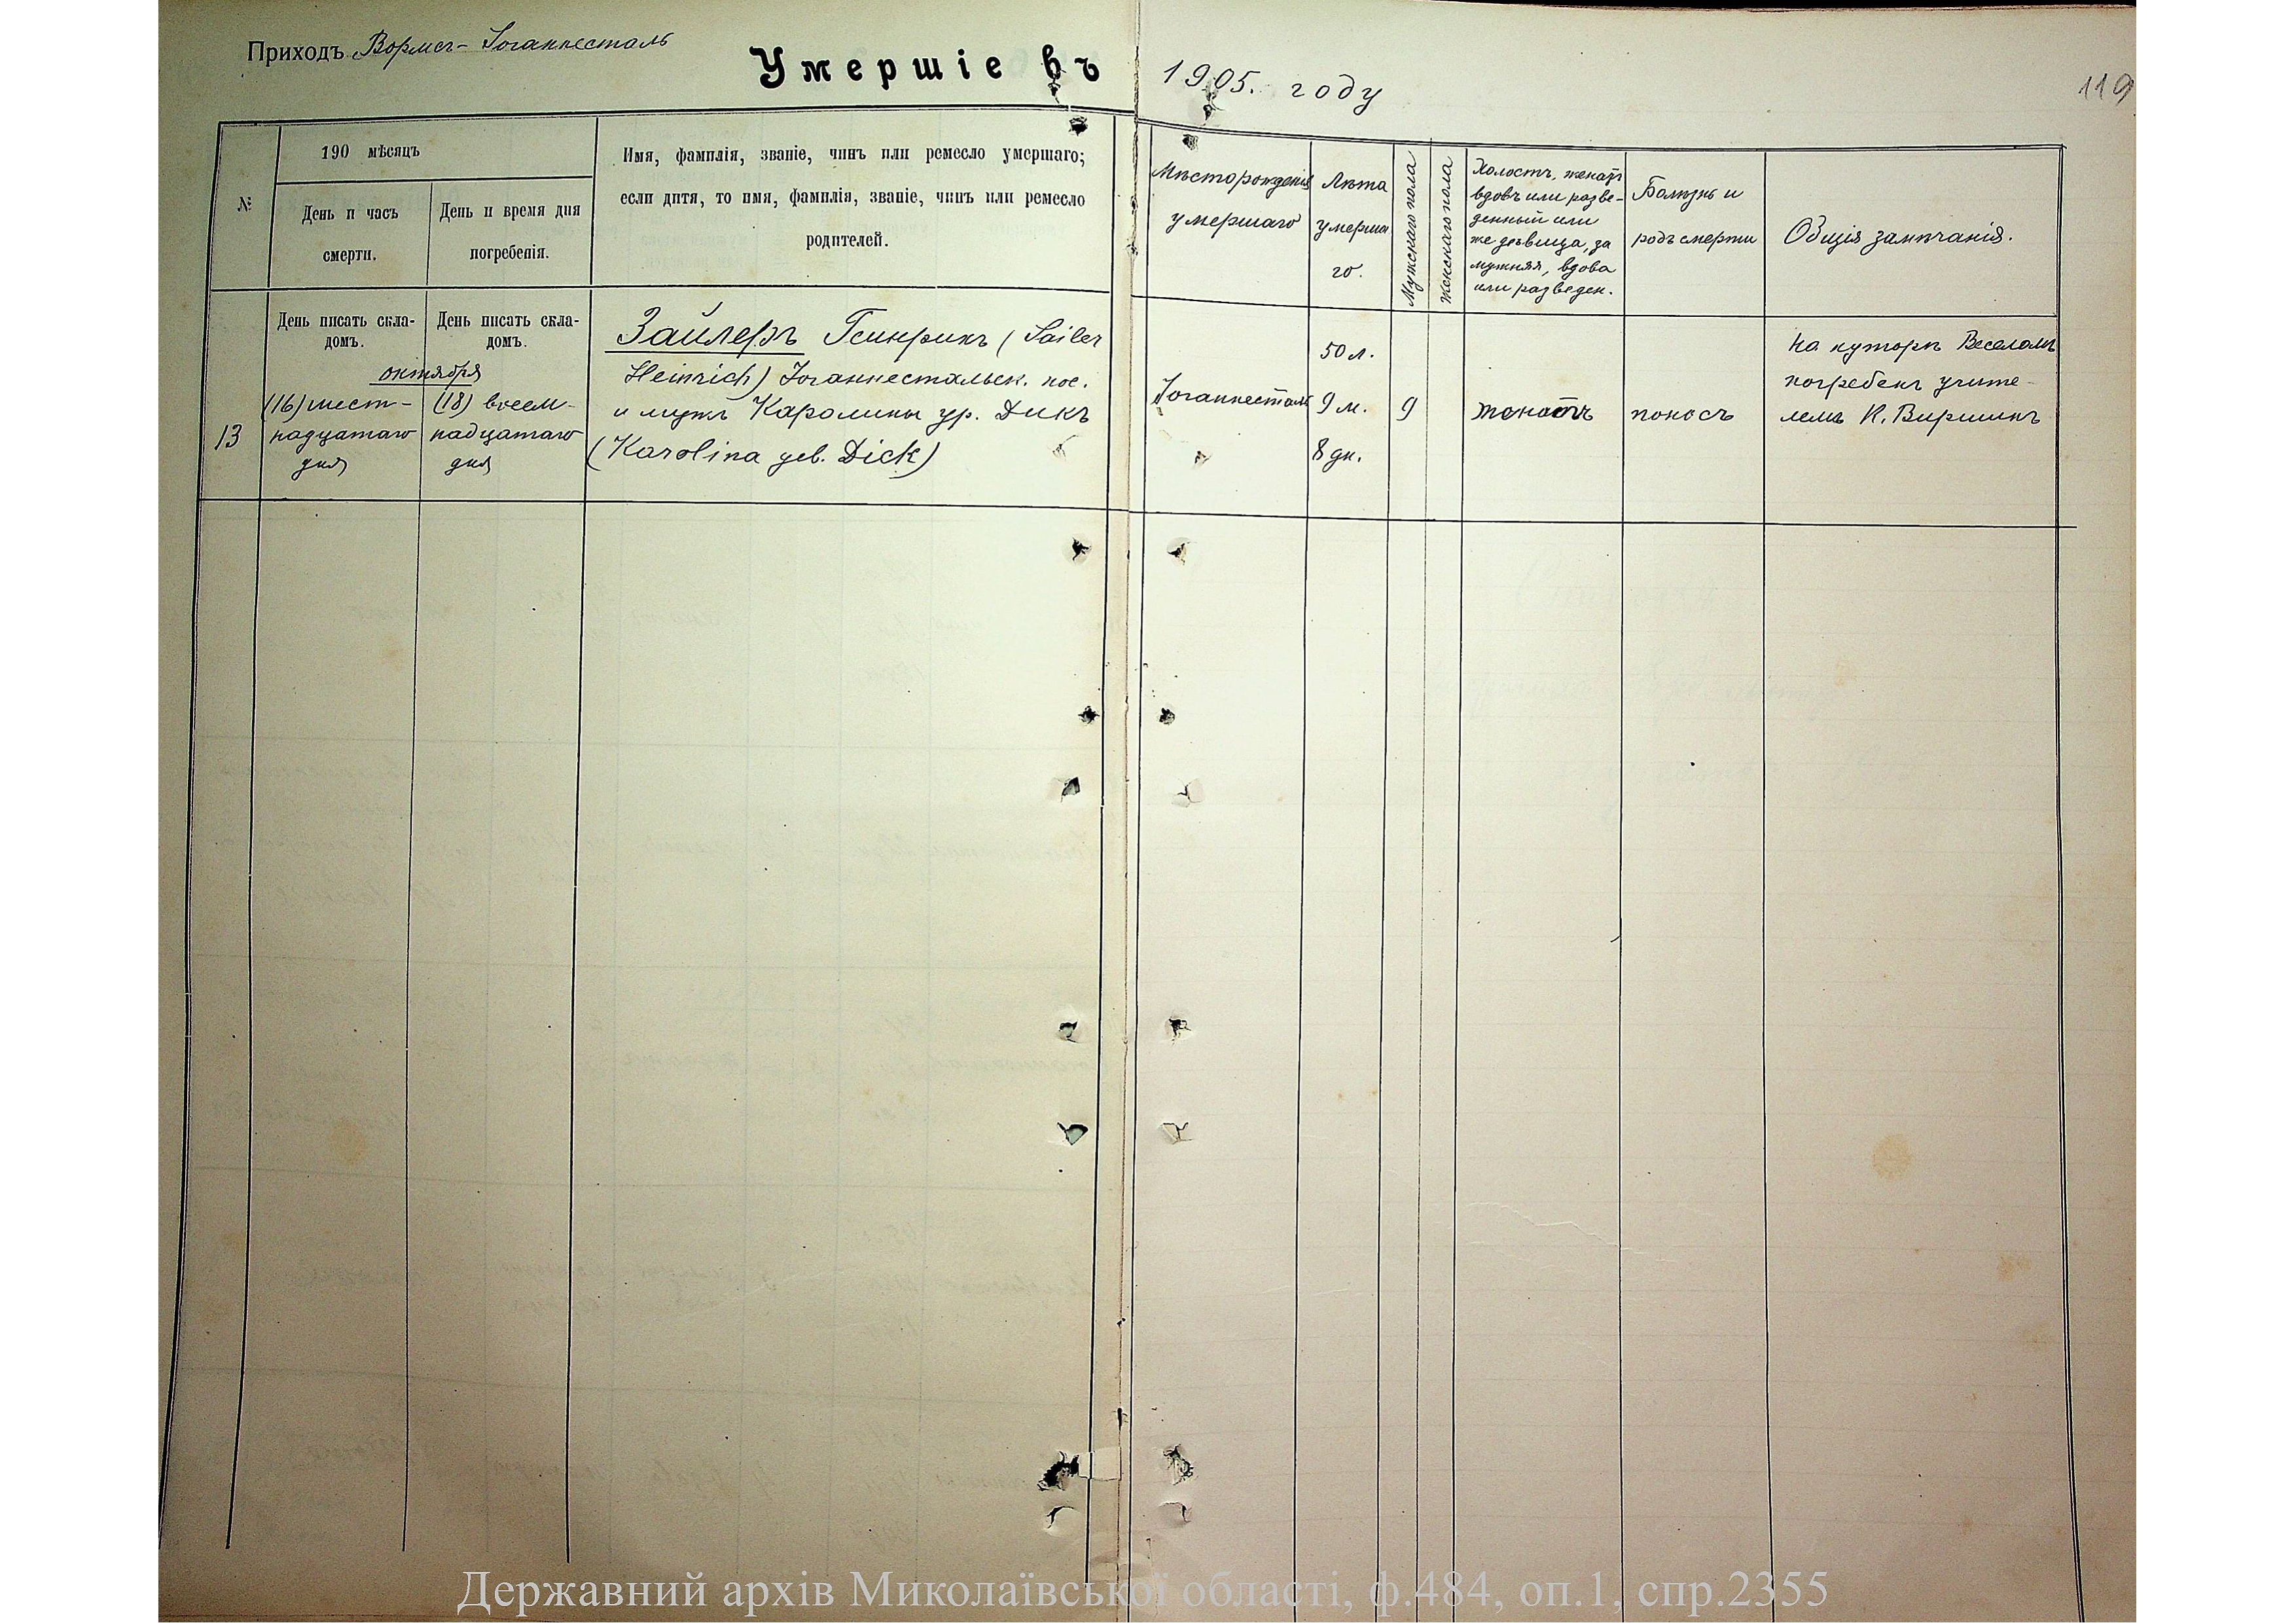 Приходъ Вормсъ-Іоганнесталь
Умершіе въ 1905. году
119
№
190 мѣсяцъ
День и часъ
смерти.
День и время дня
погребенія.
Имя, фамилія, званіе, чинъ или ремесло умершаго;
если дитя, то имя, фамилія, званіе, чинъ или ремесло
родителей.
Мѣсторожденія
умершаго
Лѣта
умерша
го.
Мужскаго пола
Женскаго пола
Холостъ, женатъ
вдовъ или разве-
денный или
же дѣвица, за
мужняя, вдова
или разведен.
Болѣзнь и
родъ смерти
Общія замѣчанія.
День писать скла-
домъ.
День писать скла-
домъ.
октября
13
(16) шест-
надцатаго
дня
(18) восем-
надцатаго
дня
Зайлеръ Генрихъ (Sailer
Heinrich) Іоганнестальск. пос.
и мужъ Каролины ур. Дикъ
(Karolina geb. Dick)
Іоганнесталь
50 л.
9 м.
8 дн.
9
женатъ
поносъ
На хуторѣ Веселомъ
погребенъ учите-
лемъ К. Виршинъ
Державний архів Миколаївської області, ф.484, оп.1, спр.2355